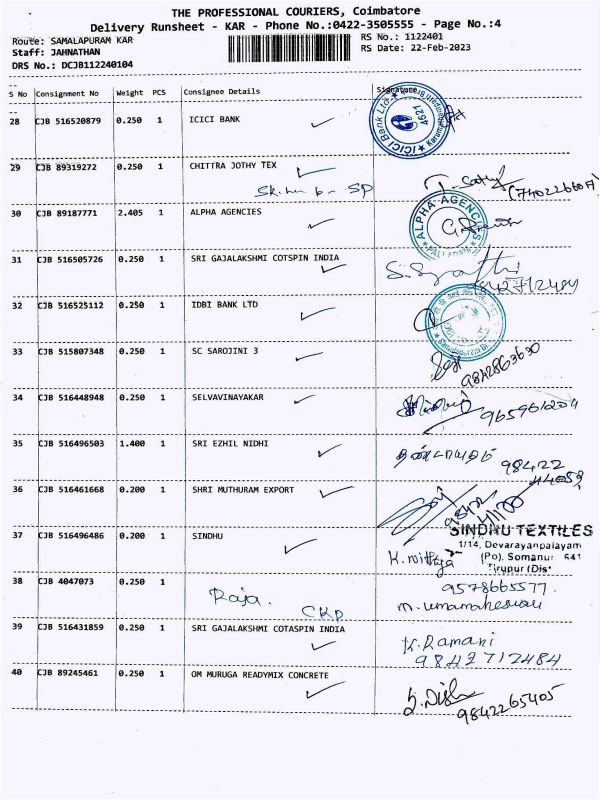 THE PROFESSIONAL COURIERS, Coimbatore
Delivery Runsheet - KAR - Phone No.:0422-3505555 - Page No.:4
Route: SAMALAPURAM KAR
RS No.: 1122401
Staff: JAHNATHAN
RS Date: 22-Feb-2023
DRS No.: DCJB112240104
S No Consignment No Weight PCS Consignee Details Signature
28 CJB 516520879 0.250 1 ICICI BANK
ICICI Bank Ltd 4621
29 CJB 89319272 0.250 1 CHITTRA JOTHY TEX
30 CJB 89187771 2.405 1 ALPHA AGENCIES
ALPHA AGENCIES
31 CJB 516505726 0.250 1 SRI GAJALAKSHMI COTSPIN INDIA
9842712484
32 CJB 516525112 0.250 1 IDBI BANK LTD
33 CJB 515807348 0.250 1 SC SAROJINI 3
9842863630
34 CJB 516448948 0.250 1 SELVAVINAYAKAR
965961204
35 CJB 516496503 1.400 1 SRI EZHIL NIDHI
98422
44053
36 CJB 516461668 0.200 1 SHRI MUTHURAM EXPORT
37 CJB 516496486 0.200 1 SINDHU
SINDHU TEXTILES
1/14, Devarayanpalayam
(Po). Somanur 641
Tirupur (Dis
K. nithya
38 CJB 4047073 0.250 1
Raja. CKP
9578665577.
m. umamaheswari
39 CJB 516431859 0.250 1 SRI GAJALAKSHMI COTASPIN INDIA
K. Ramani
9842712484
40 CJB 89245461 0.250 1 OM MURUGA READYMIX CONCRETE
9842265405